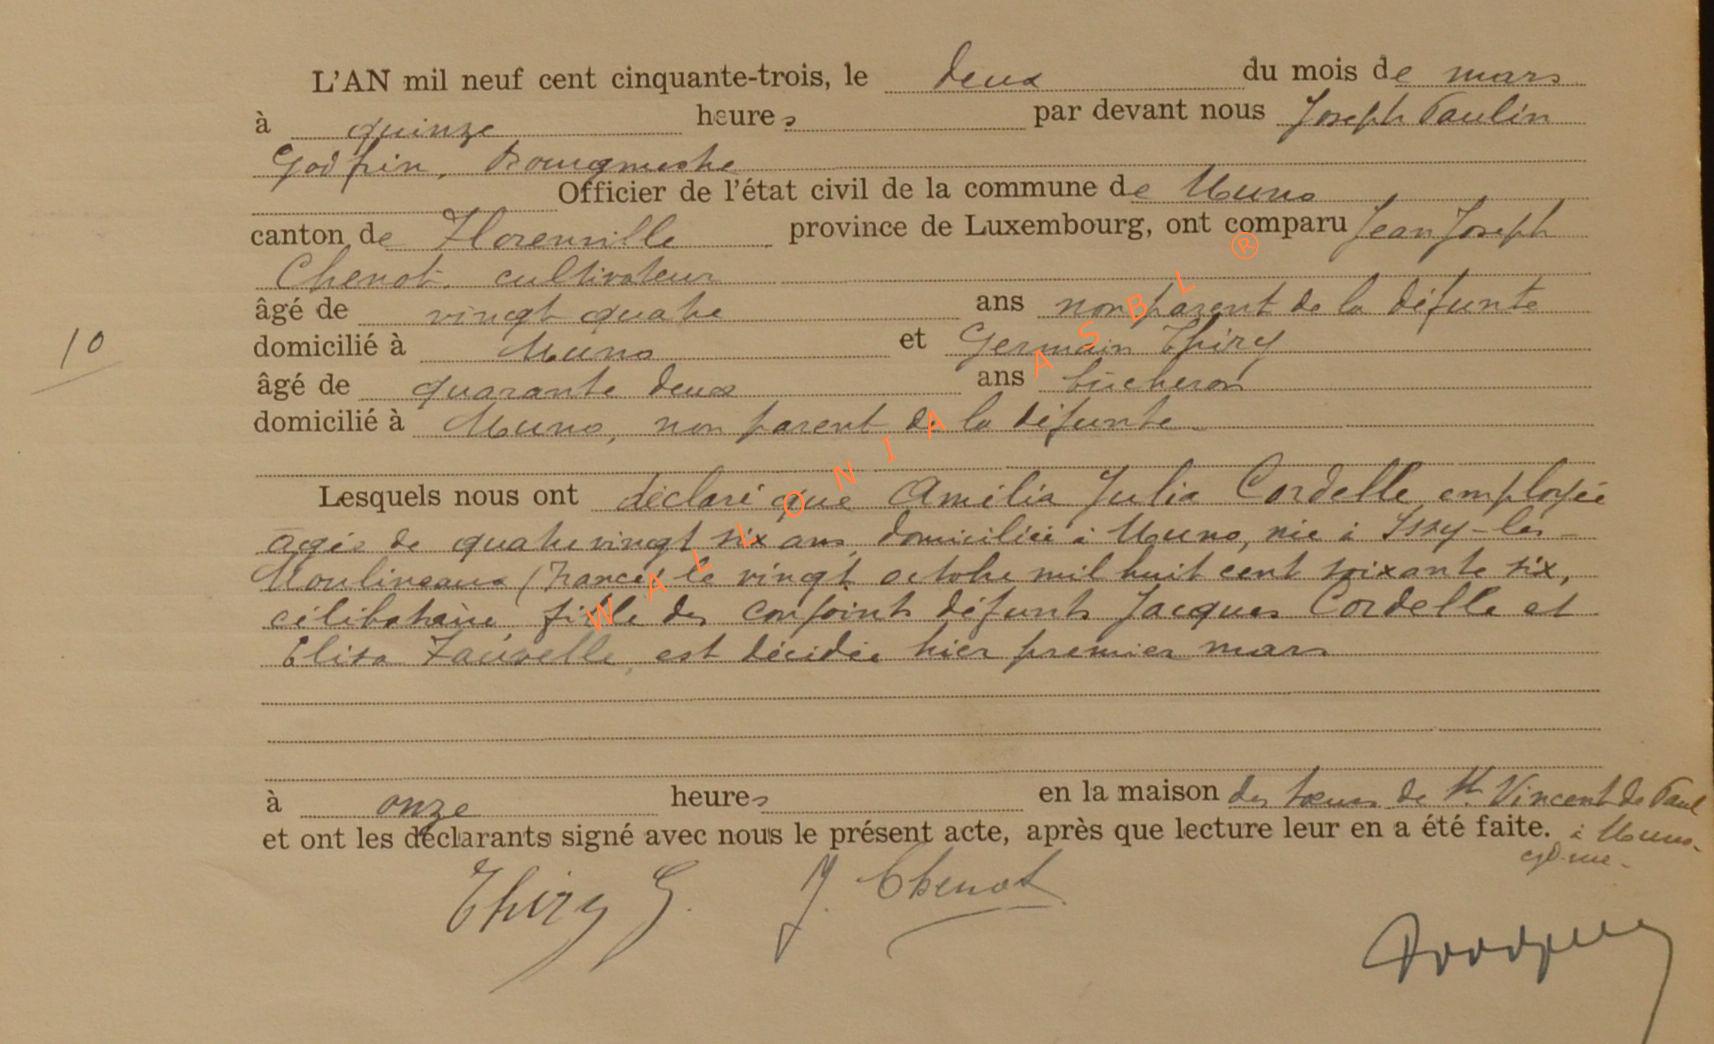 L'AN mil neuf cent cinquante-trois, le deux du mois de mars
à quinze heures par devant nous Joseph Paulin
Godfrin, Bourgmestre
Officier de l'état civil de la commune de Muno
canton de Florenville province de Luxembourg, ont comparu Jean Joseph
Chenot, cultivateur
âgé de vingt quatre ans non parent de la défunte
10
domicilié à Muno et Germain Thiry
âgé de quarante deux ans bûcheron
domicilié à Muno, non parent de la défunte
Lesquels nous ont déclaré que Amélia Julia Cordelle employée
agée de quatre vingt six ans, domiciliée à Muno, née à Issy-les-
Moulineaux (France) le vingt octobre mil huit cent soixante six,
célibataire, fille des conjoints défunts Jacques Cordelle et
Elisa Fauvelle, est décédée hier premier mars
à onze heures en la maison des soeurs de St. Vincent de Paul
et ont les déclarants signé avec nous le présent acte, après que lecture leur en a été faite. à Muno.
Thiry G. J. Chenot
WALLONIA ASBL ®